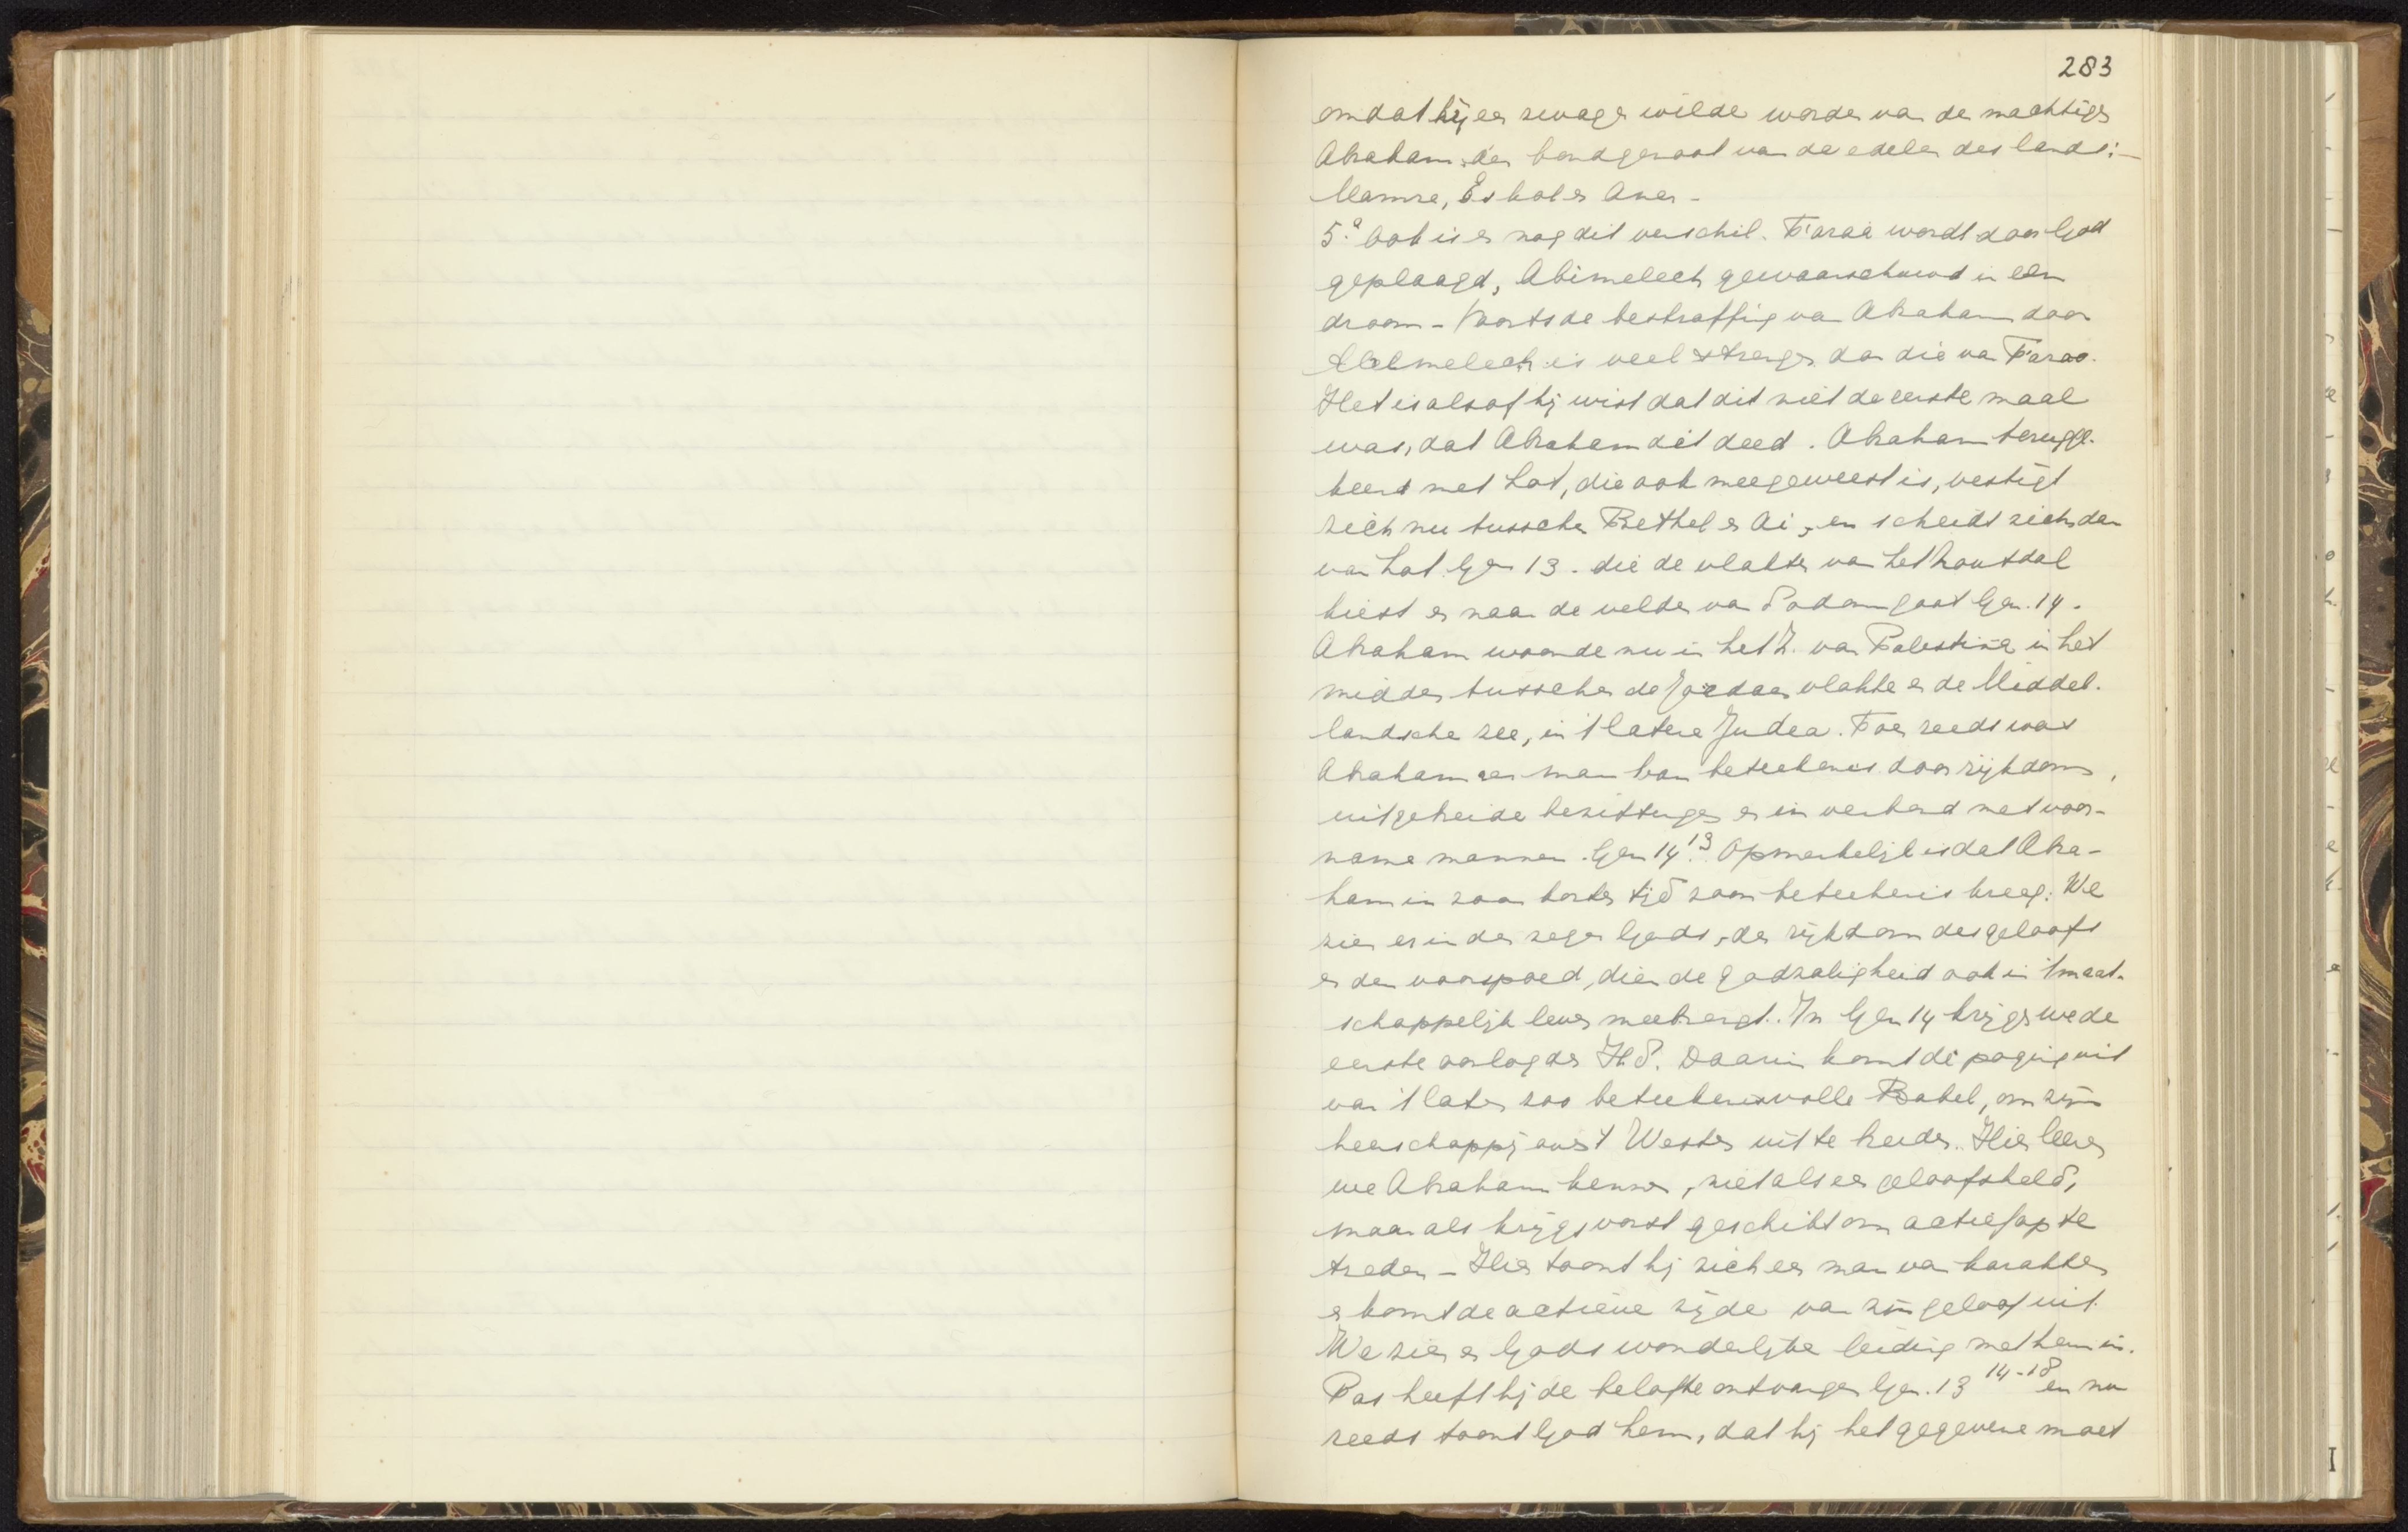 283
omdat hij een zwager wilde worden van de machtigen
Abraham, den bondgenoot van de edelen des lands:—
Mamre, Eskol en Aner –
5.° Ook is er nog dit verschil. Farao wordt door God
geplaagd, Abimelech gewaarschuwd in een
droom – Voorts de bestraffing van Abraham door
Abimelech is veel strenger dan die van Farao.
Het is alsof hij wist dat dit niet de eerste maal
was, dat Abraham dit deed. Abraham terugge-
keerd met Lot, die ook meegeweest is, vestigt
zich nu tusschen Bethel en Ai, en scheidt zich dan
van Lot. Gen 13. die de vlakte van het zoutdal
kiest en naar de velden van Sodom gaat Gen. 14.
Abraham woonde nu in het Z. van Palestina in het
midden tusschen de Jordaan vlakte en de Middel-
landsche zee, in 't latere Judea. Toen reeds was
Abraham een man van beteekenis door rijkdom,
uitgebreide bezittingen en in verband met voor-
name mannen. Gen 14 13. Opmerkelijk is dat Abra-
ham in zoon korten tijd zoon beteekenis kreeg. We
zien er in den zegen Gods, den rijkdom des geloofs
en den voorspoed, dien de godzaligheid ook in 't maat-
schappelijk leven meebrengt. In Gen 14 krijgen we de
eerste oorlog der H.S. Daarin komt de poging uit
van 't later zoo beteekenisvolle Babel, om zijn
heerschappij over 't Westen uit te breiden. Hier leeren
we Abraham kennen, niet als een geloofsheld,
maar als krijgsvorst geschikt om actief op te
treden – Hier toont hij zich een man van karakter
en komt de actieve zijde van zijn geloof uit.
We zien er Gods wonderlijke leiding met hem in.
Pas heeft hij de belofte ontvangen Gen. 13 14-18 en nu
reeds toont God hem, dat hij het gegevene moet